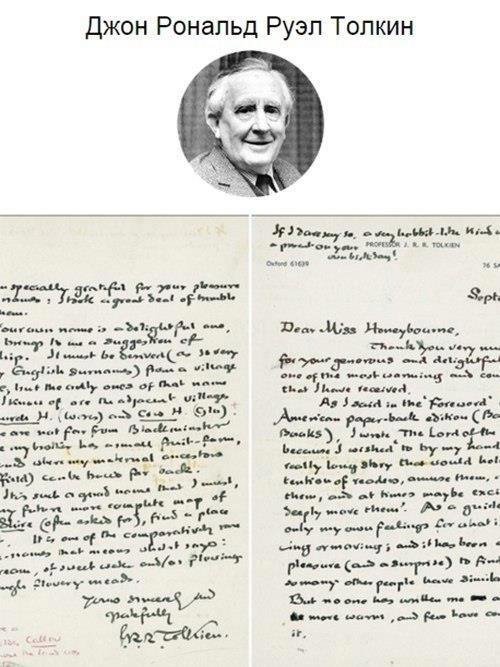 Джон Рональд Руэл Толкин
specially grateful for your pleasure
names: I took a great deal of trouble
your own name is a delightful one,
brings to me a suggestion of
It must be derived (as so very
English surnames) from a village
but the only ones of that name
I know of are the adjacent villages
Church H. (Worcs) and Cow H. (Glo)
are not far from
my brother has a small fruit-farm,
and where my maternal ancestors
can be traced far back.
It is such a good name that I must,
future more complete map of
Shire (often asked for), find a place
It is one of the comparatively rare
names that means what it says:
of sweet water and/or flowing
flowery meads.
Yours sincerely and
gratefully
J.R.R. Tolkien.
Callow
If I dare say so, a very hobbit-like kind of
a present on your
own birthday!
PROFESSOR J. R. R. TOLKIEN
Oxford 61639
76 SA
Septe
Dear Miss Honeybourne,
Thank you very mu
for your generous and delightful
one of the most warming and com
that I have received.
As I said in the 'Foreword'
American paper-back edition (Ba
Books), I wrote The Lord of the
because I wished 'to try my hand
really long story that would hol
tention of readers, amuse them,
them, and at times maybe exc
deeply move them'. As a guide
only my own feelings for what i
ing or moving; and it has been a
pleasure (and a surprise) to find
so many other people have simila
But no one has written me a
more warm, and few have co
it.